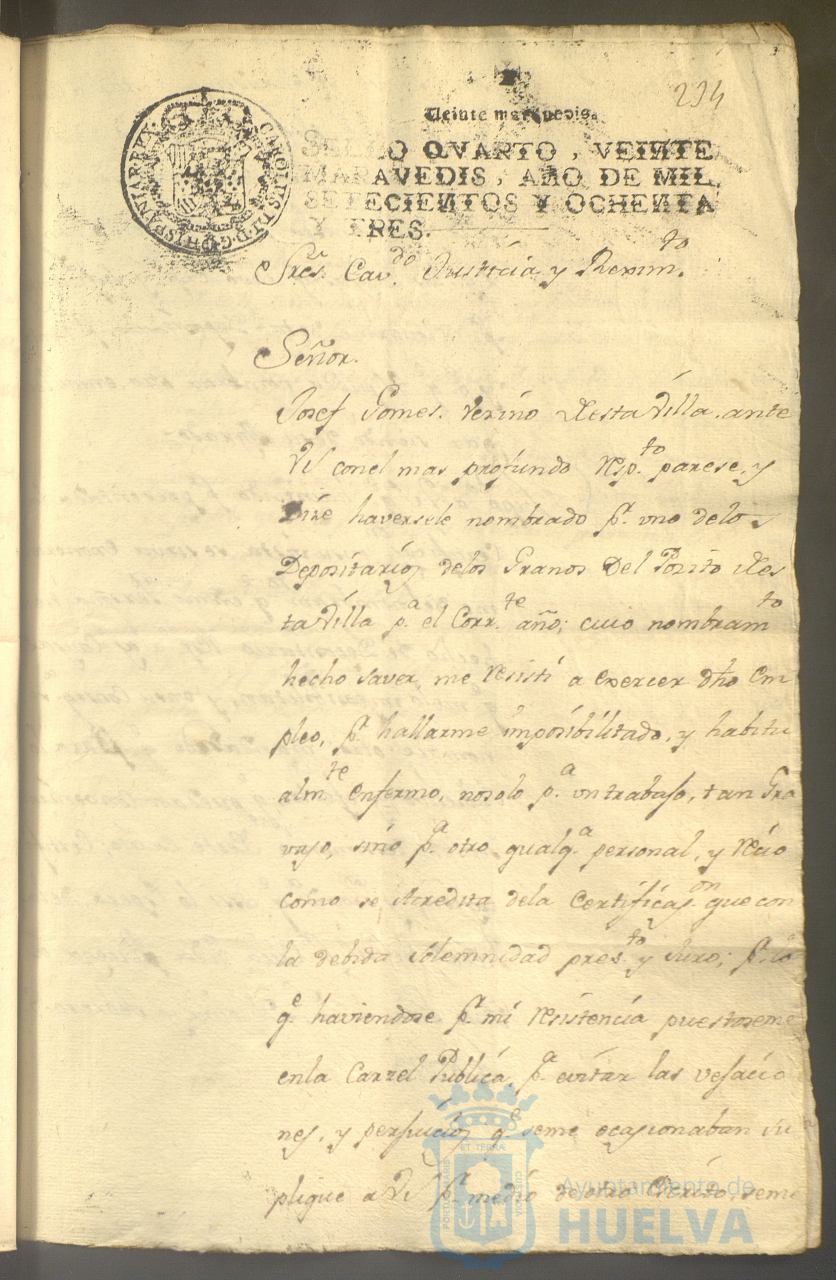 294
Veinte maravedis.
SELLO QVARTO, VEINTE
MARAVEDIS, AÑO DE MIL
SETECIENTOS Y OCHENTA
Y TRES.
CAROLUS III D.G. HISPANIAR. REX
Sres. Cav.do Justicia y Rexim.to
Señor.
Josef Gomes Verino desta Villa, ante
VS con el mas profundo resp.to parese, y
Dize haversele nombrado p.r uno delos
Depositarios delos Granos Del Posito des
ta Villa p.a el Corr.te año; cuio nombram.to
hecho saver, me resistí a exercer dho Em
pleo, p.r hallarme imposibilitado, y habitu
alm.te enfermo, nosolo p.a un trabajo, tan Gra
voso, sino p.a otro qualq.a personal, y recio
como se Acredita dela Certificas.on que con
la debida solemnidad pres.to y Juro; p.r lo
q.e haviendose p.r mi resistencia puestoseme
enla Carzel Publica, p.a evitar las vejacio
nes, y perjuicios q.e seme ocasionaban su
plique a VS p.r medio de otro Escrito, seme
Ayuntamiento de
HUELVA